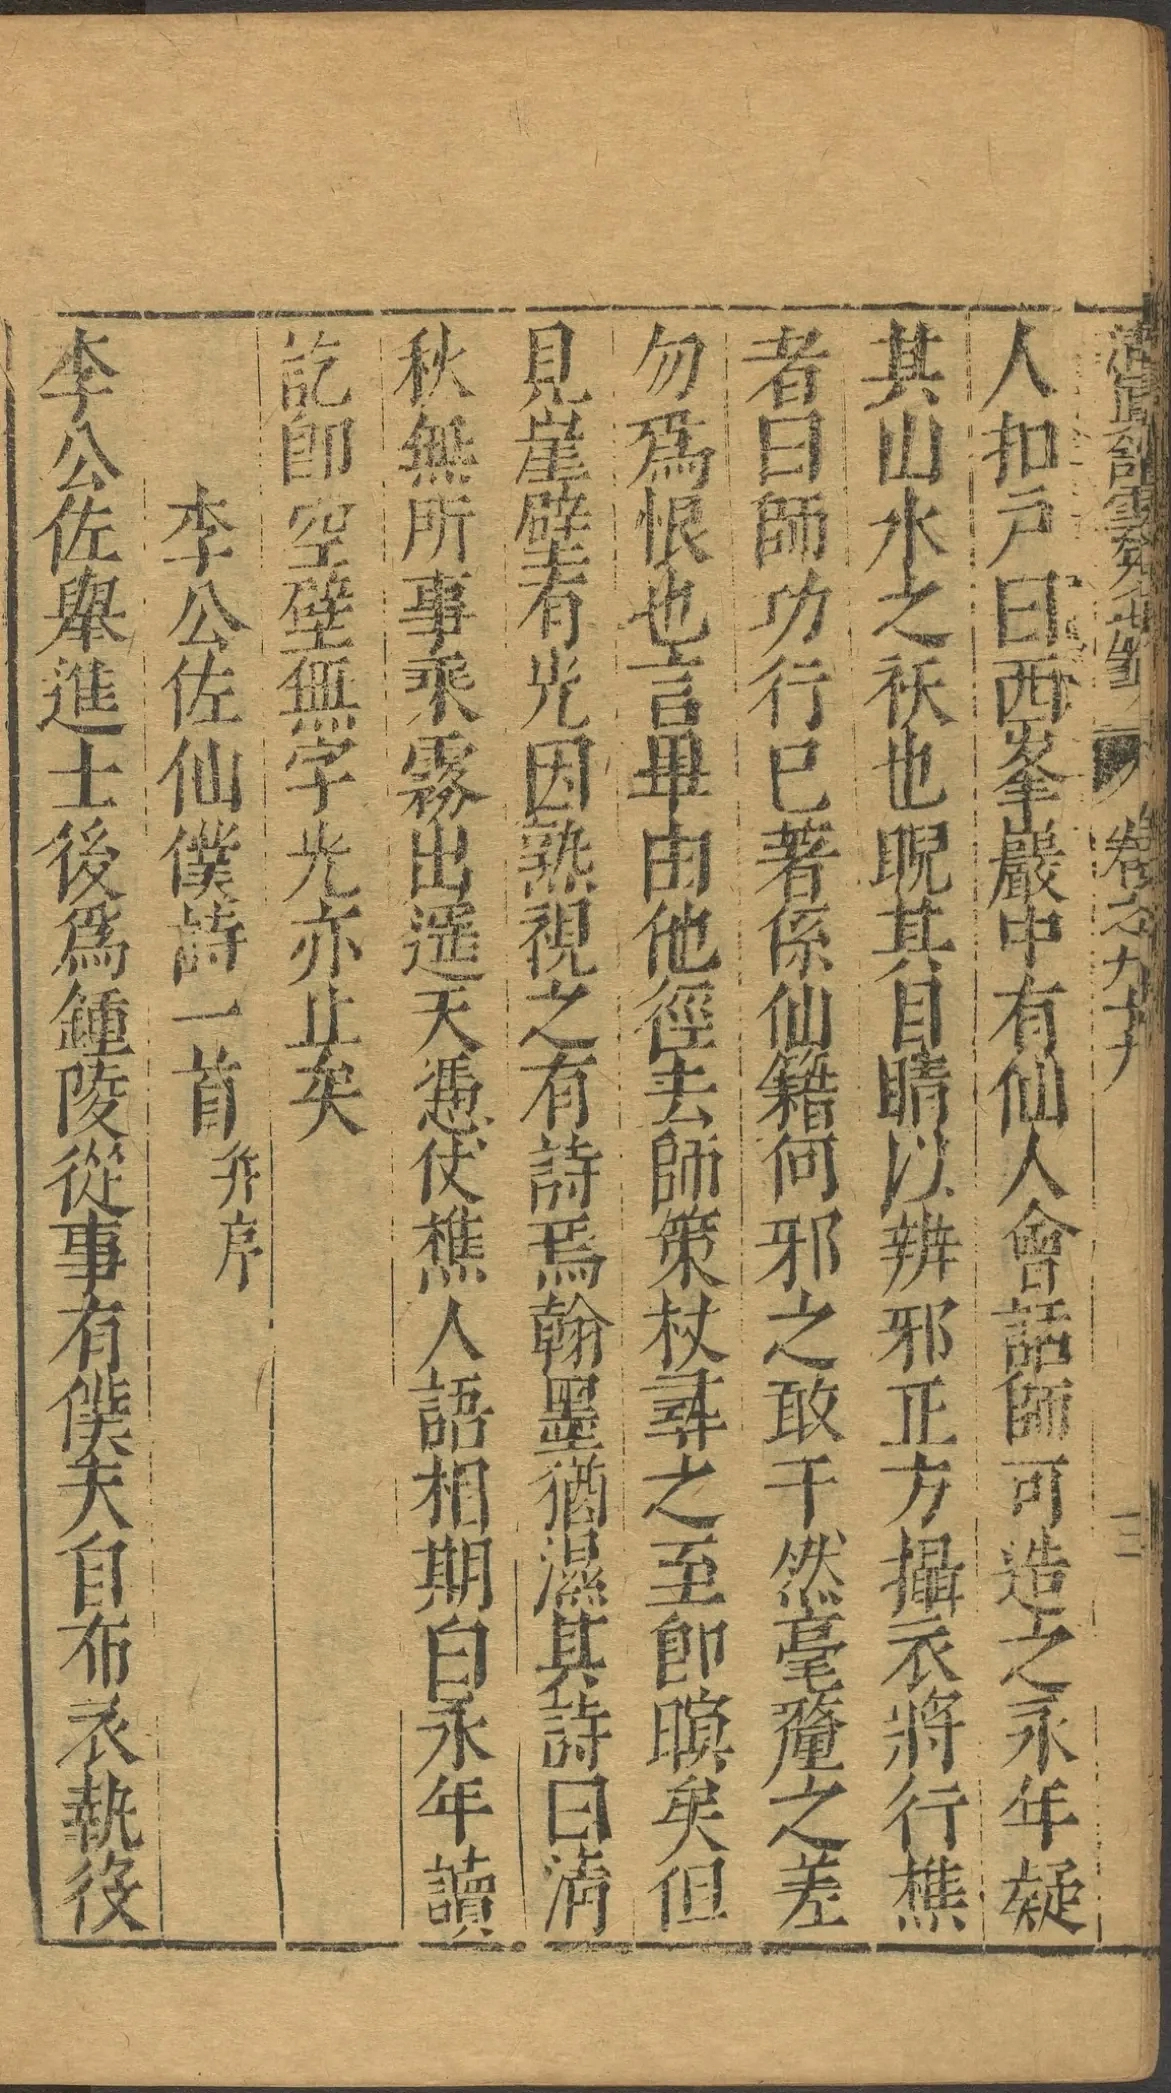 卷之九十
三
人扣戶曰西峯嚴中有仙人會話師可造之永年疑
其山水之袄也睨其目睛以辨邪正方攝衣將行樵
者曰師功行已著係仙籍何邪之敢干然毫釐之差
勿爲恨也言畢由他徑去師策杖尋之至即瞑矣但
見崖壁有光因熟視之有詩焉翰墨猶濕其詩曰淸
秋無所事乘霧出遥天憑仗樵人語相期白永年讀
訖即空壁無字光亦止矣
李公佐仙僕詩一首并序
李公佐舉進士後爲鍾陵從事有僕夫自布衣執役